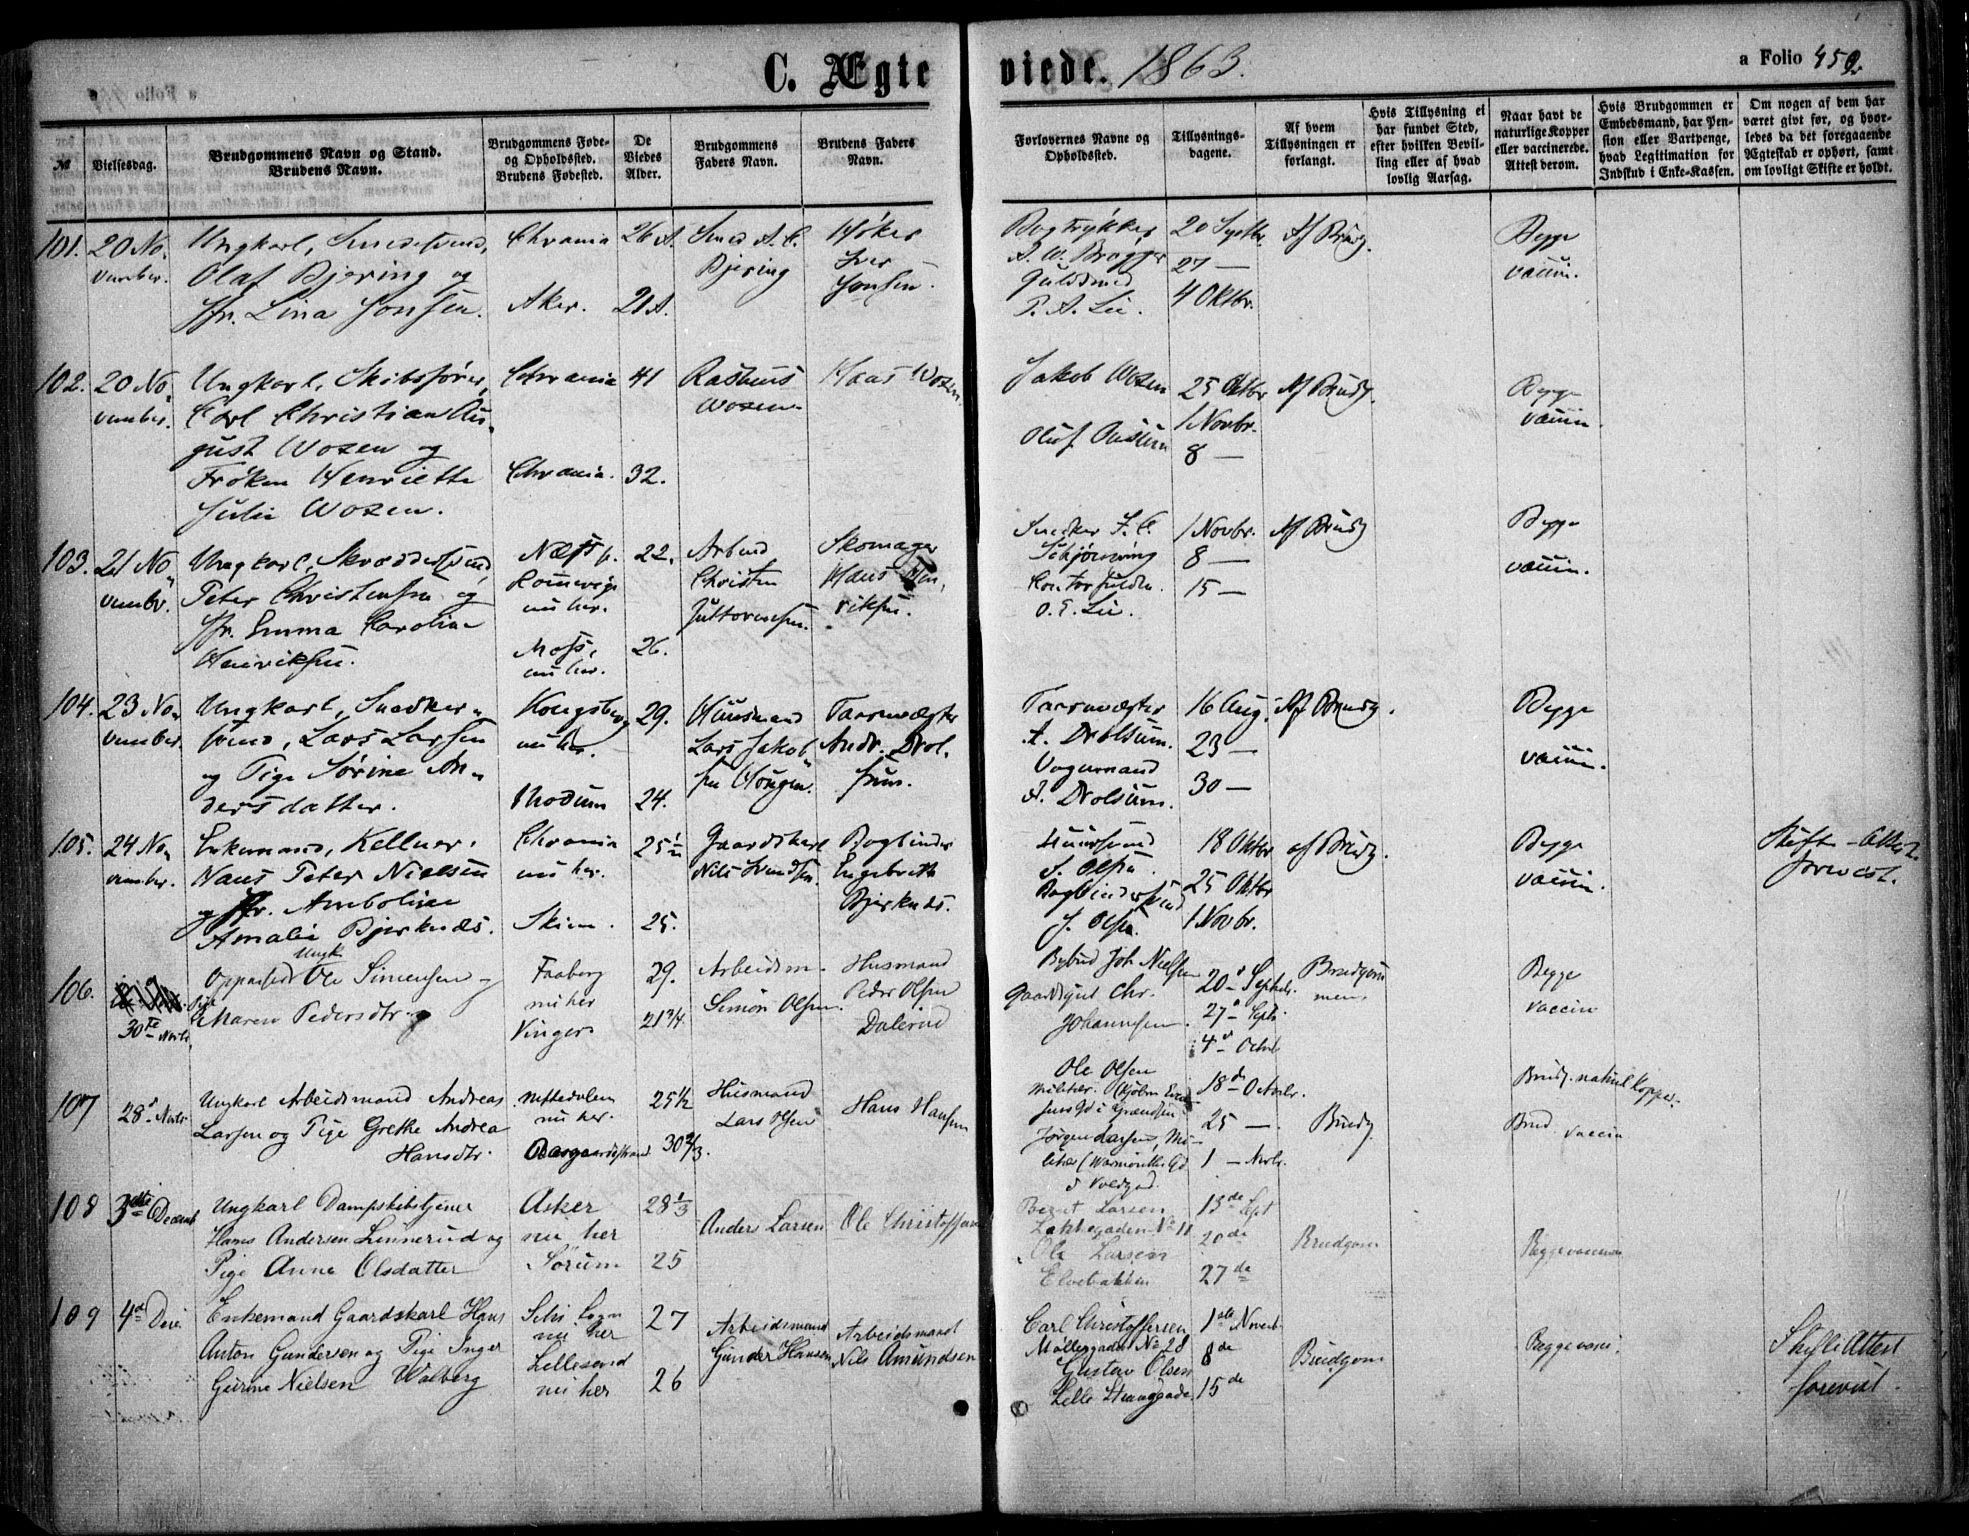 C. Ægteviede. 1863.
a Folio 459
№
Vielsesdag.
Brudgommens Navn og Stand.
Brudens Navn.
Brudgommens Føde-
og Opholdssted.
Brudens Fødested.
De
Viedes
Alder.
Brudgommens
Faders Navn.
Brudens Faders
Navn.
Forlovernes Navne og
Opholdssted.
Tillysnings-
dagene.
Af hvem
Tillysningen er
forlangt.
Hvis Tillysning ei
har fundet Sted,
efter hvilken Bevil-
ling eller af hvad
lovlig Aarsag.
Naar havt de
naturlige Kopper
eller vaccinerede.
Attest derom.
Hvis Brudgommen er
Embedsmand, har Pen-
sion eller Vartpenge,
hvad Legitimation for
Indskud i Enke-Kassen.
Om nogen af dem har
været gift før, og hvor-
ledes da det foregaaende
Ægteskab er ophørt, samt
om lovligt Skifte er holdt.
101. 20 No-
vember.
Ungkarl, Smedesvend,
Olaf Bjering og
Jfr. Lina Jonsen.
Chrania
Aker.
26 A.
21 A.
Smed A. C.
Bjering
Høker
Iver
Jonsen.
Bogtrykker
A. W. Brøgger
Guldsmed
P. A. Lie.
20 Septbr.
27 —
4 Oktbr.
Af Brudg.
Begge
vaccin.
102. 20 No-
vember.
Ungkarl, Skibsfører,
Carl Christian Au-
gust Wozen og
Frøken Henriette
Julie Wozen.
Chrania
Chrania.
41
32.
Rasmus
Wozen
Haas Wozen.
Jakob Wozen
Oluf
25 Oktbr
1 Novbr.
8 —
Af Brudg.
Begge
vaccin.
103. 21 No-
vembr.
Ungkarl, Skræddersvend
Peter Christensen og
Jfr. Emma Caroline
Henriksen.
Næss p.
Romerige
nu her.
Moss,
nu her.
22.
26.
Arbeid
Christen
Guttormsen.
Skomager
Hans Hen-
riksen.
Snedker F. C.
Kontorfuldm.
O. E. Lie.
1 Novbr.
8 —
15 —
Af Brudg
Begge
vaccin.
104. 23 No-
vember.
Ungkarl, Snedker-
svend, Lars Larsen
og Pige Sørine An-
dersdatter.
Kongsberg
nu her.
Modum
29.
24.
Huusmand
Lars Jakob
sen Hougen.
Taarnvægter
Andr. Drol-
sum.
Taarnvægter
A. Drolsum.
Vognmand
A. Drolsum.
16 Aug.
23 —
30 —
Af Brudg.
Begge
vaccin.
105. 24 No-
vember.
Enkemand, Kellner,
Hans Peter Nielsen
og Jfr. Amboline
Amalie Bjerknæs.
Chrania
nu her.
Skien.
25½
25.
Gaardskarl
Nils Svendsen.
Bogbinder
Engebreth
Bjerknæs.
S. Olsen.
Bogbindersvend
J. Olsen.
18 Oktbr
25 Oktbr
1 Novbr.
af Brudg.
Begge
vaccin.
Skifte-Attest
forevist.
106.
30te Novbr.
Ungk
Oppasser Ole Simensen og
Pige Maren Pedersdtr.
Faaberg
nu her
Vinger
29.
21¾
Arbeidsm.
Simon Olsen.
Husmand
Peder Olsen
Dalerud
Bybud Joh Nielsen
Gaardsgut Chr.
Johannesen.
20de Septbr.
27de Septb.
4de Octob
Brudgom
men
Begge
vaccin
107 28de Novbr
Ungkarl Arbeidsmand Andreas
Larsen og Pige Grethe Andrea
Hansdtr.
Nittedalen
nu her.
Aasgaardstrand
25½
30⅔.
Husmand
Lars Olsen
Hans Hansen
Ole Olsen
Jørgen Larsen, Mi-
18de Octobr.
25 —
1 — Novbr.
Brudg
Brudg. naturl kopper.
Brud. vaccin
108 3die Decemb
Ungkarl Dampskibstjener
Hans Andersen Linnerud og
Pige Anne Olsdatter
Asker
nu her
Sørum
28⅓
25
Anders Larsen
Ole Christoffersen
Bernt Larsen
Lakkegaden No 11
Ole Larsen
Elvebakken
13de Sept
20de
27de
Brudgom
Begge vaccineret
109 4de Dece
Enkemand Gaardskarl Hans
Anton Gundersen og Pige Inger
Gurine Nielsen Walberg
nu her
Lillesand
nu her
27
26
Arbeidsmand
Gunder Hansen
Arbeidsmand
Nils Amundsen
Carl Christoffersen
Møllergaden No 28
Gustav Olsen
Lille Strandgade
1ste Novemb
8de
15de
Brudgom
Begge vacci.
Skifte Attest
forevist.